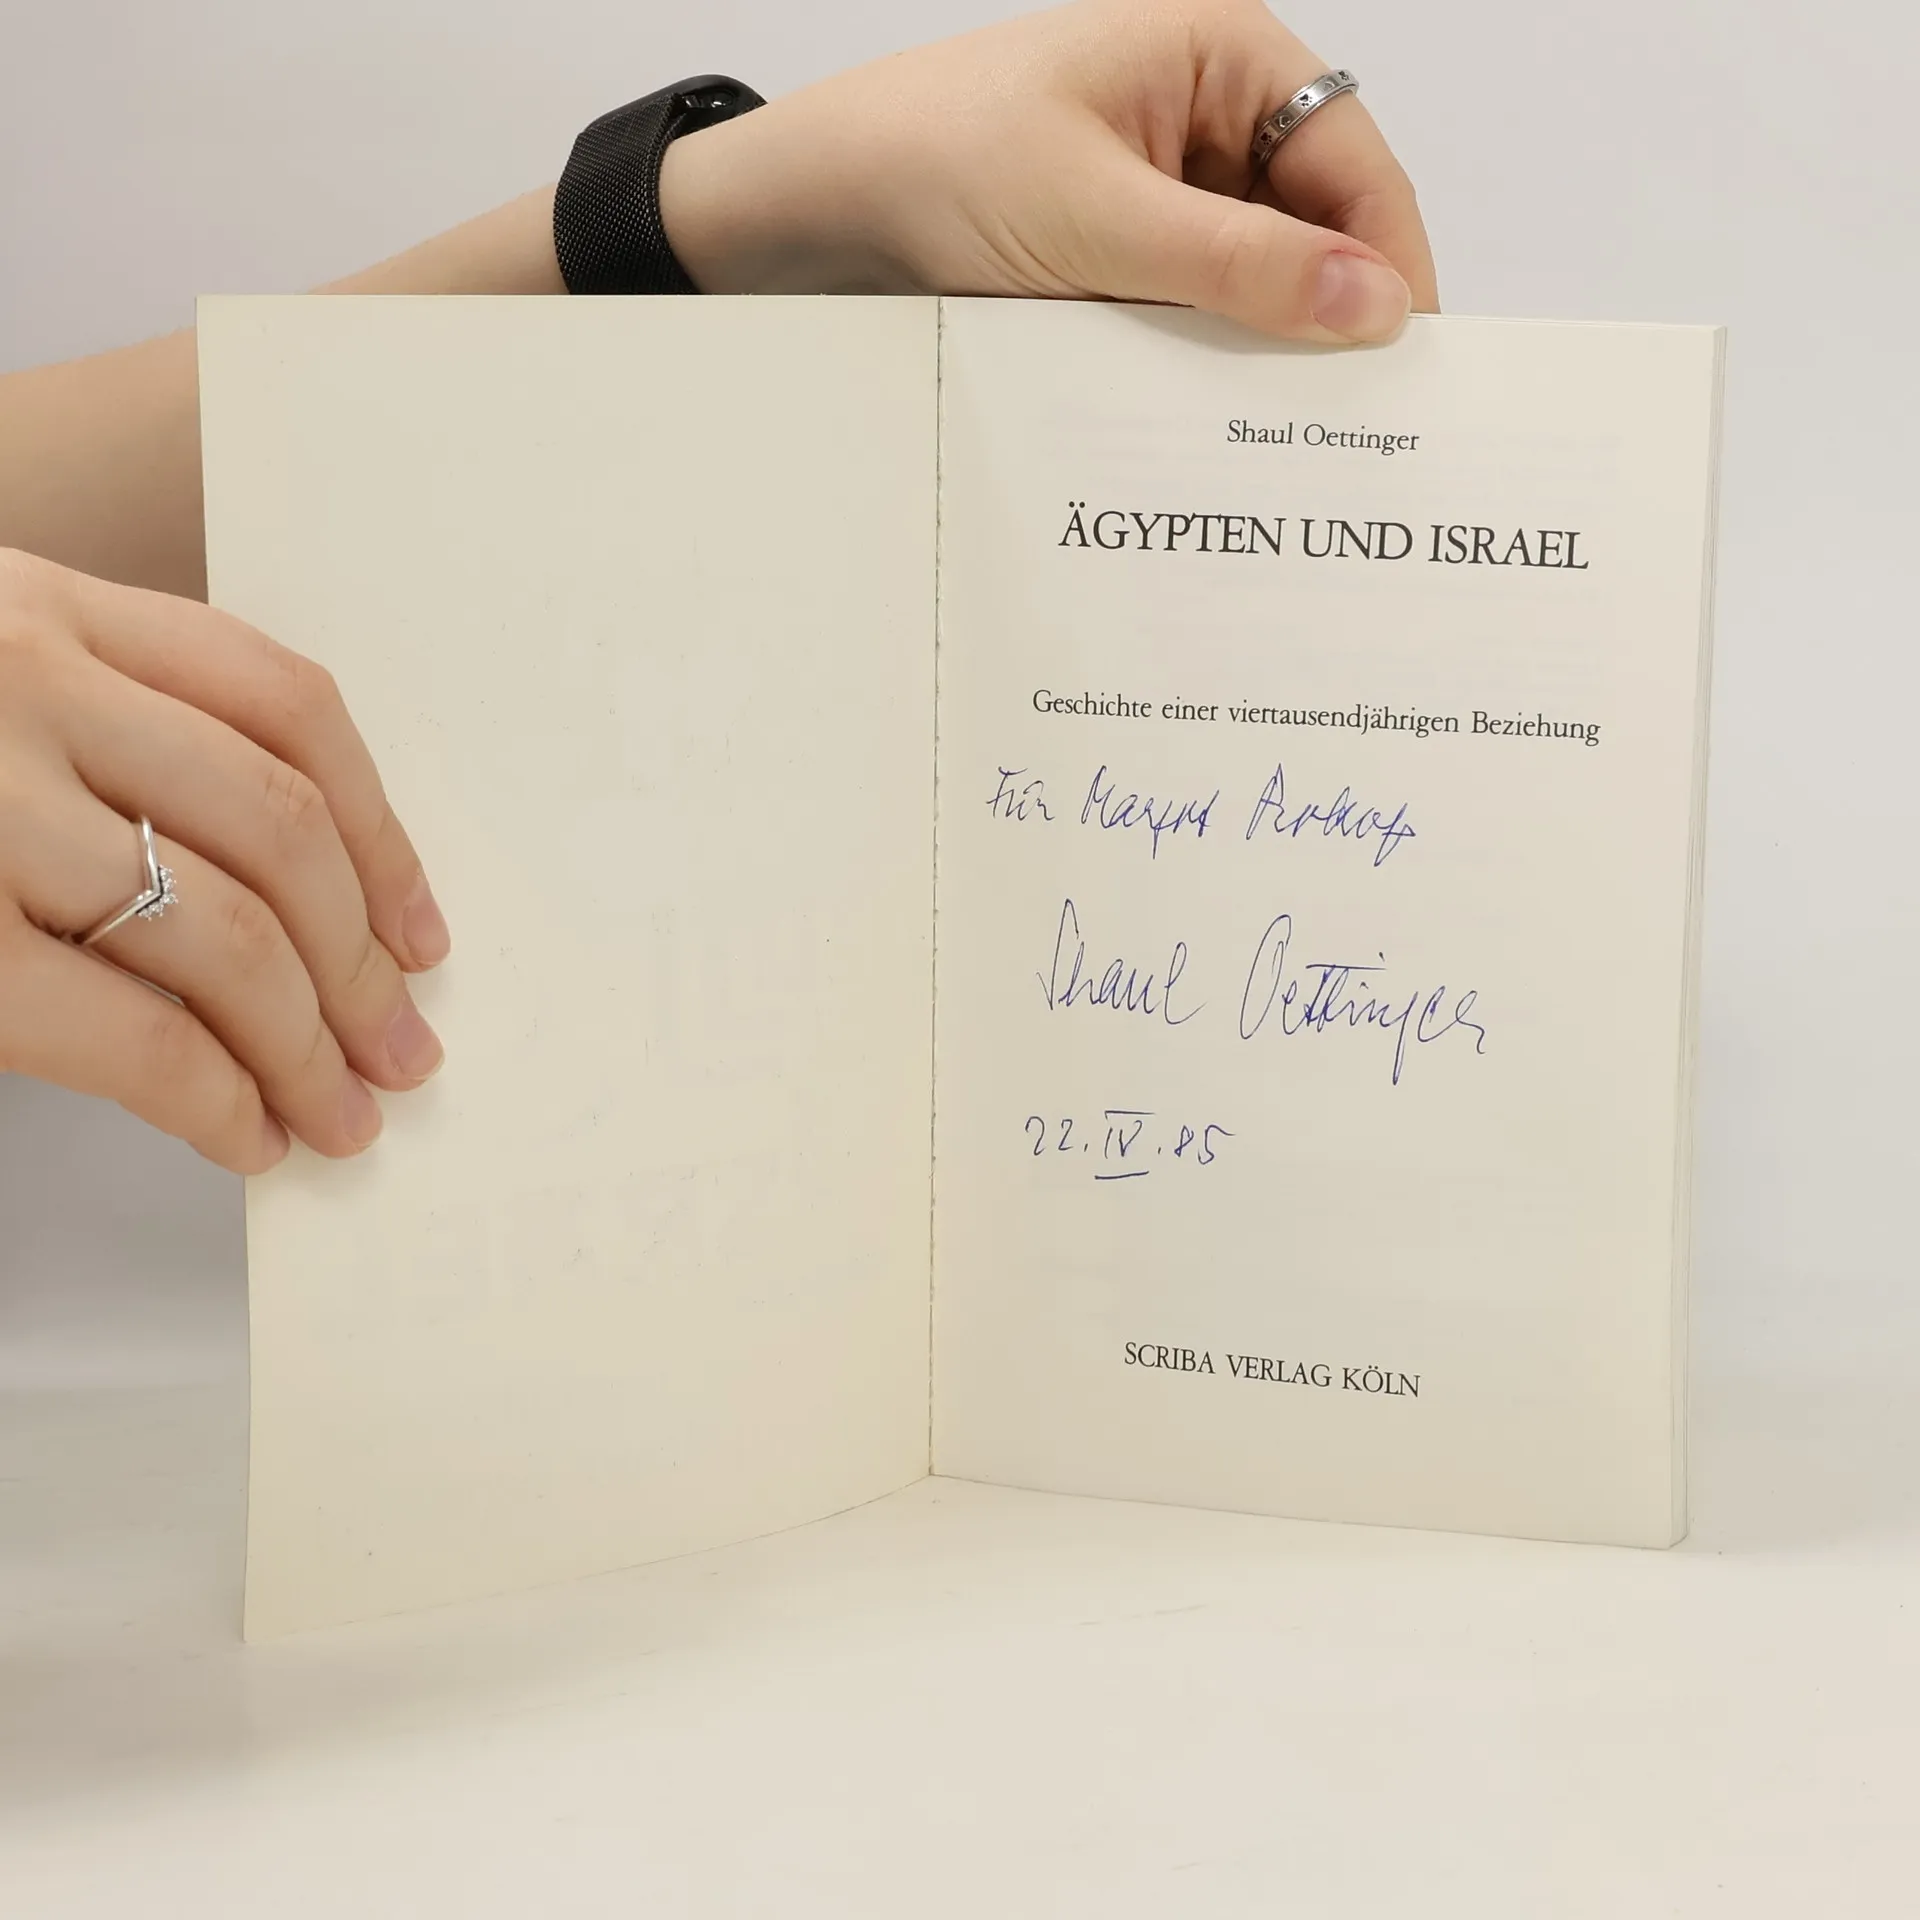 Shaul Oettinger
ÄGYPTEN UND ISRAEL
Geschichte einer viertausendjährigen Beziehung
Für Margret
Shaul Oettinger
22.IV.85
SCRIBA VERLAG KÖLN